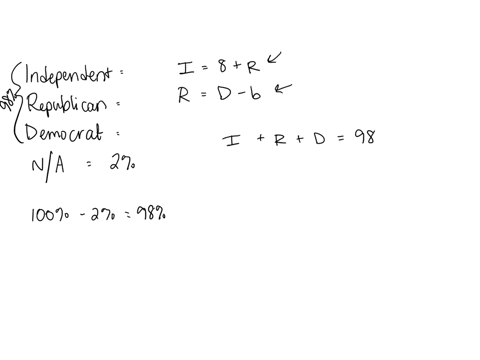 98%
Independent =
Republican =
Democrat =
N/A = 2%
100% - 2% = 98%
I = 8 + R
R = D - 6
I + R + D = 98